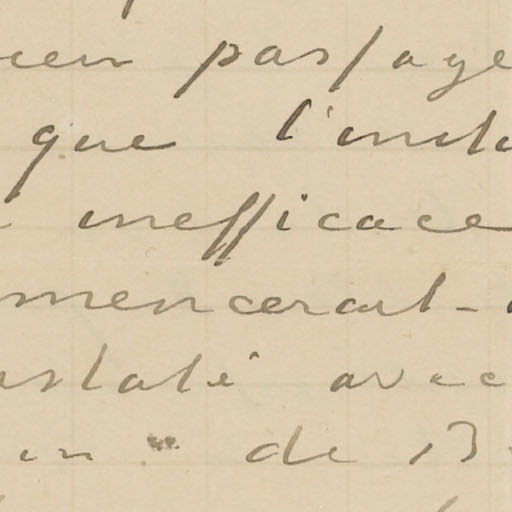 cien passage
que l'insta
inefficace
mencerait-
nstaté avec
in de B